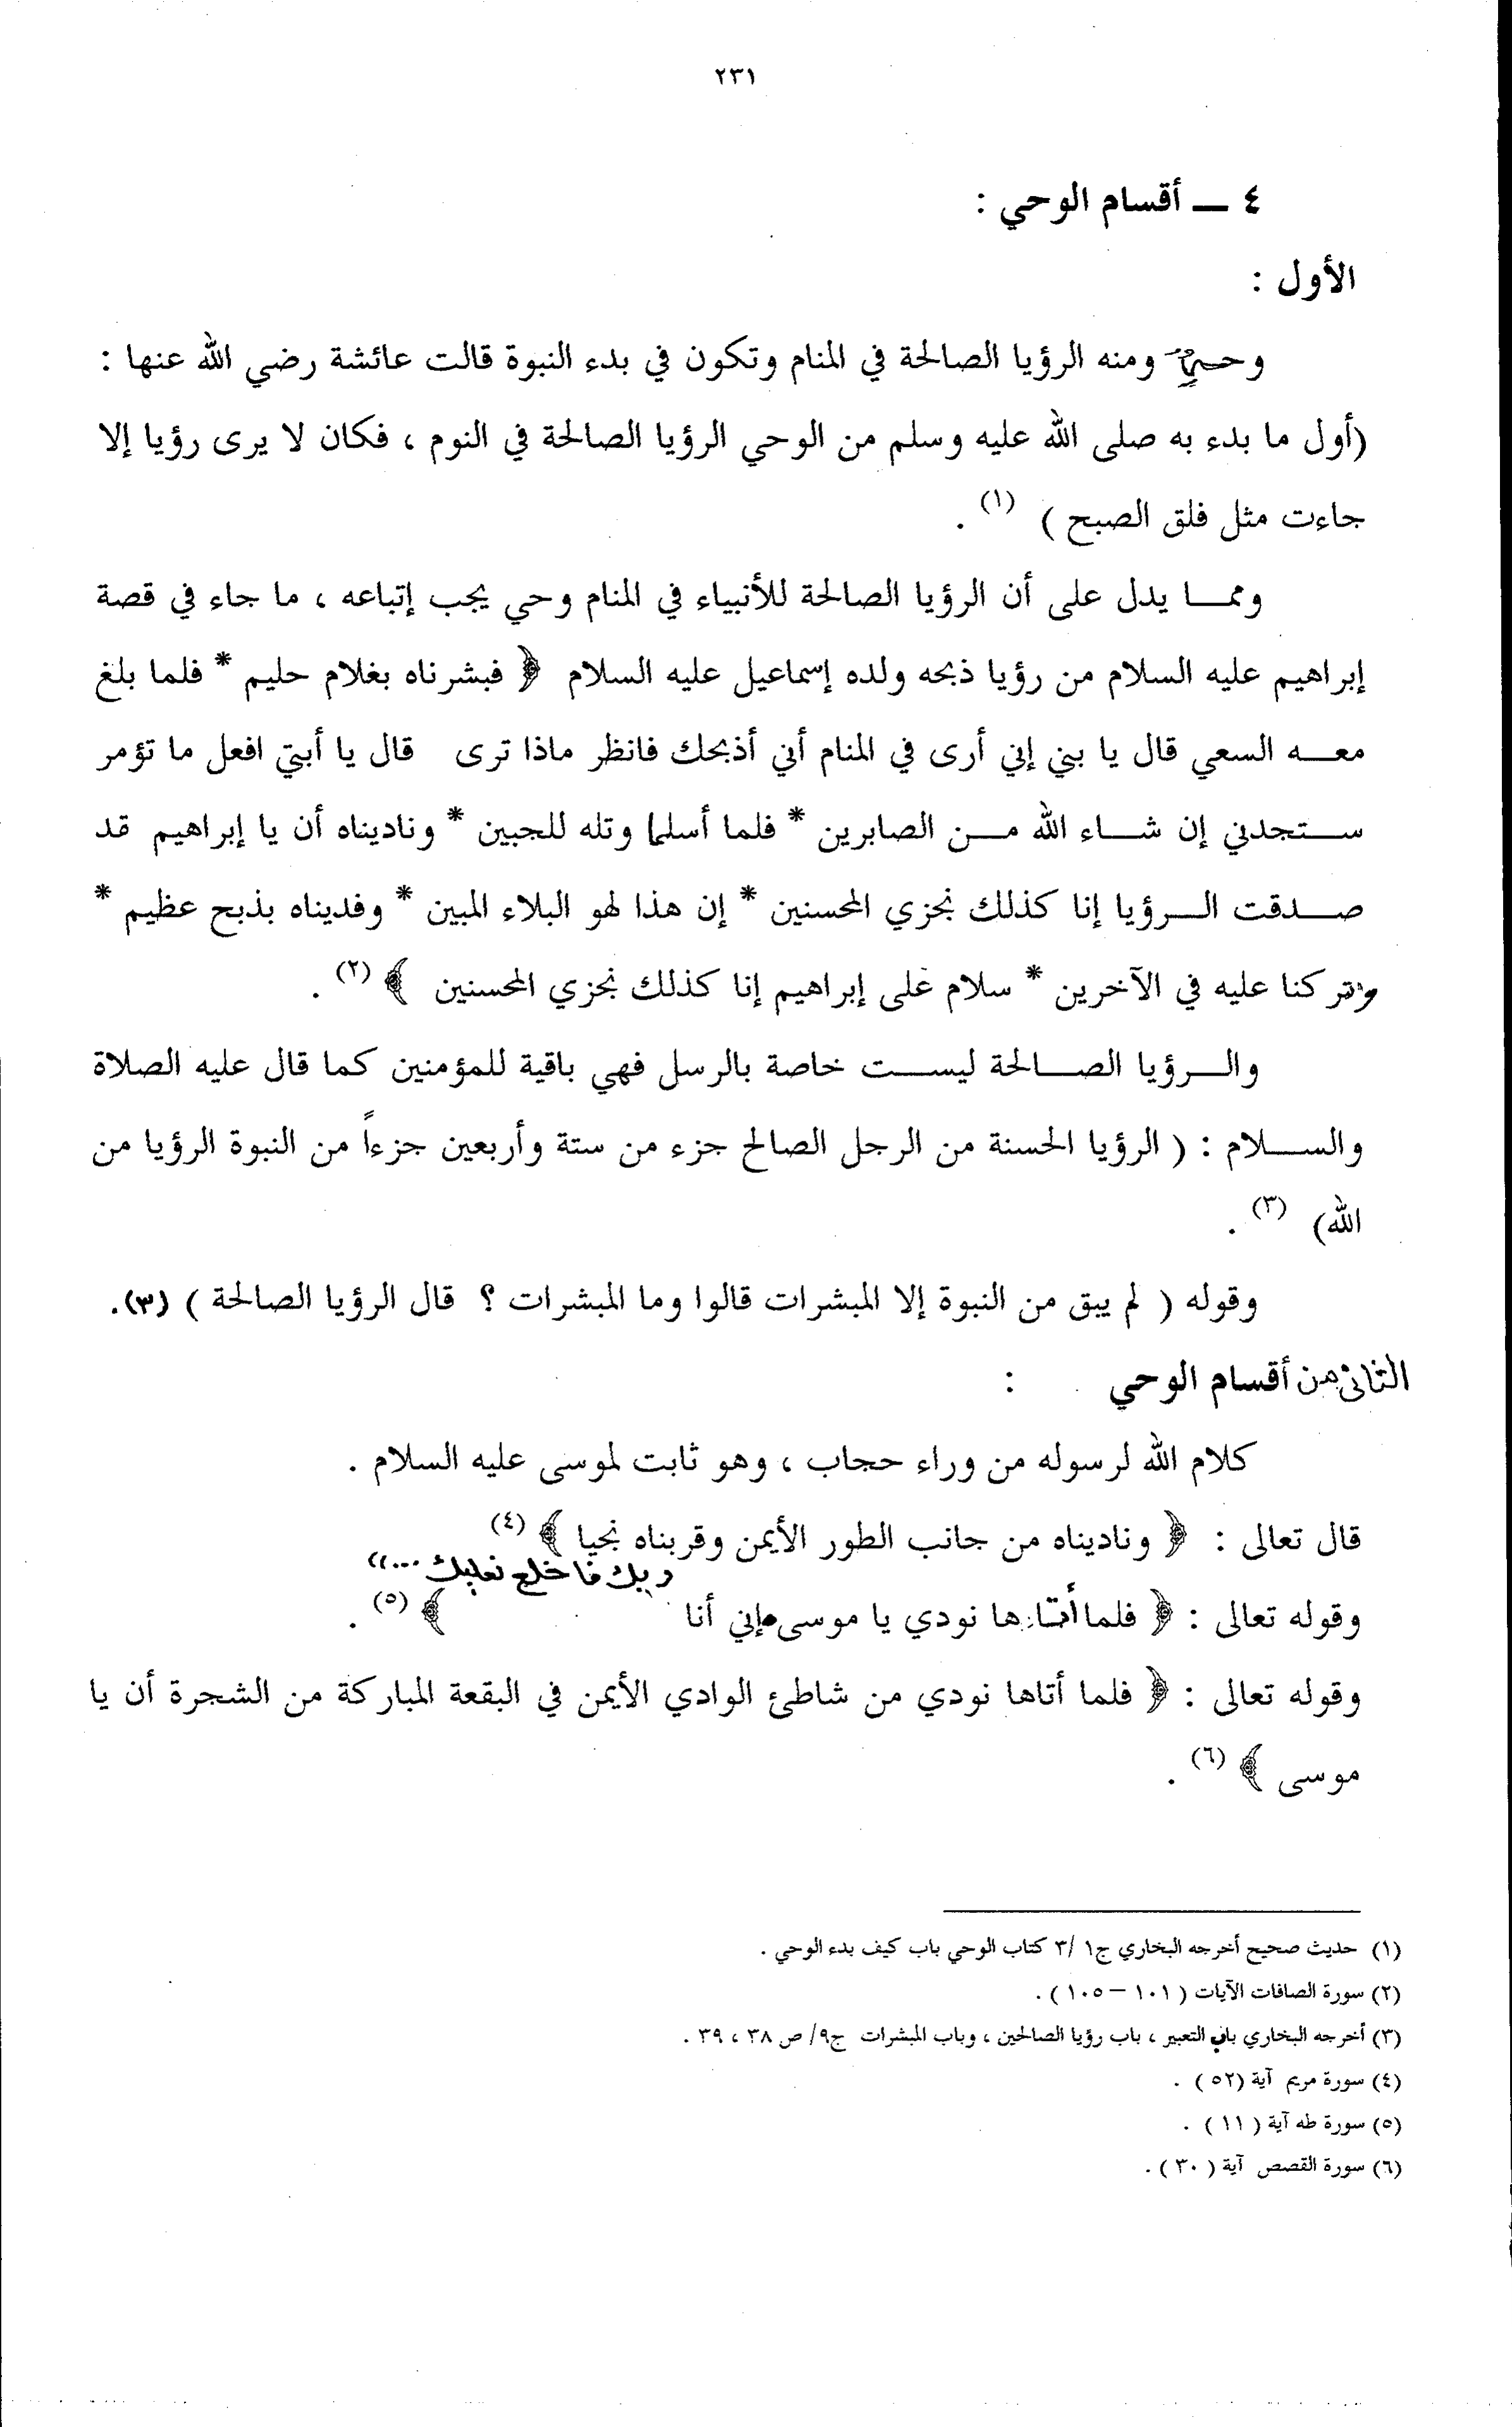 ٢٣١
٤ ـــ أقسام الوحي :
الأول :
وحي ومنه الرؤيا الصالحة في المنام وتكون في بدء النبوة قالت عائشة رضي الله عنها :
(أول ما بدء به صلى الله عليه وسلم من الوحي الرؤيا الصالحة في النوم ، فكان لا يرى رؤيا إلا
جاءت مثل فلق الصبح ) (١) .
ومما يدل على أن الرؤيا الصالحة للأنبياء في المنام وحي يجب إتباعه ، ما جاء في قصة
إبراهيم عليه السلام من رؤيا ذبحه ولده إسماعيل عليه السلام ﴿ فبشرناه بغلام حليم * فلما بلغ
معه السعي قال يا بني إني أرى في المنام أني أذبحك فانظر ماذا ترى قال يا أبتي افعل ما تؤمر
ستجدني إن شاء الله من الصابرين * فلما أسلما وتله للجبين * وناديناه أن يا إبراهيم قد
صدقت الرؤيا إنا كذلك نجزي المحسنين * إن هذا لهو البلاء المبين * وفديناه بذبح عظيم *
وتركنا عليه في الآخرين * سلام على إبراهيم إنا كذلك نجزي المحسنين ﴾ (٢) .
والرؤيا الصالحة ليست خاصة بالرسل فهي باقية للمؤمنين كما قال عليه الصلاة
والسلام : ( الرؤيا الحسنة من الرجل الصالح جزء من ستة وأربعين جزءاً من النبوة الرؤيا من
الله) (٣) .
وقوله ( لم يبق من النبوة إلا المبشرات قالوا وما المبشرات ؟ قال الرؤيا الصالحة ) (٣).
الثاني من أقسام الوحي :
كلام الله لرسوله من وراء حجاب ، وهو ثابت لموسى عليه السلام .
قال تعالى : ﴿ وناديناه من جانب الطور الأيمن وقربناه نجيا ﴾ (٤)
وقوله تعالى : ﴿ فلما أتاها نودي يا موسى إني أنا ربك فاخلع نعليك ...)) ﴾ (٥) .
وقوله تعالى : ﴿ فلما أتاها نودي من شاطئ الوادي الأيمن في البقعة المباركة من الشجرة أن يا
موسى ﴾ (٦) .
(١) حديث صحيح أخرجه البخاري ج١ /٣ كتاب الوحي باب كيف بدء الوحي .
(٢) سورة الصافات الآيات ( ١٠١ – ١٠٥ ) .
(٣) أخرجه البخاري باب التعبير ، باب رؤيا الصالحين ، وباب المبشرات ج٩/ ص ٣٨ ، ٣٩ .
(٤) سورة مريم آية (٥٢ ) .
(٥) سورة طه آية ( ١١ ) .
(٦) سورة القصص آية ( ٣٠ ) .